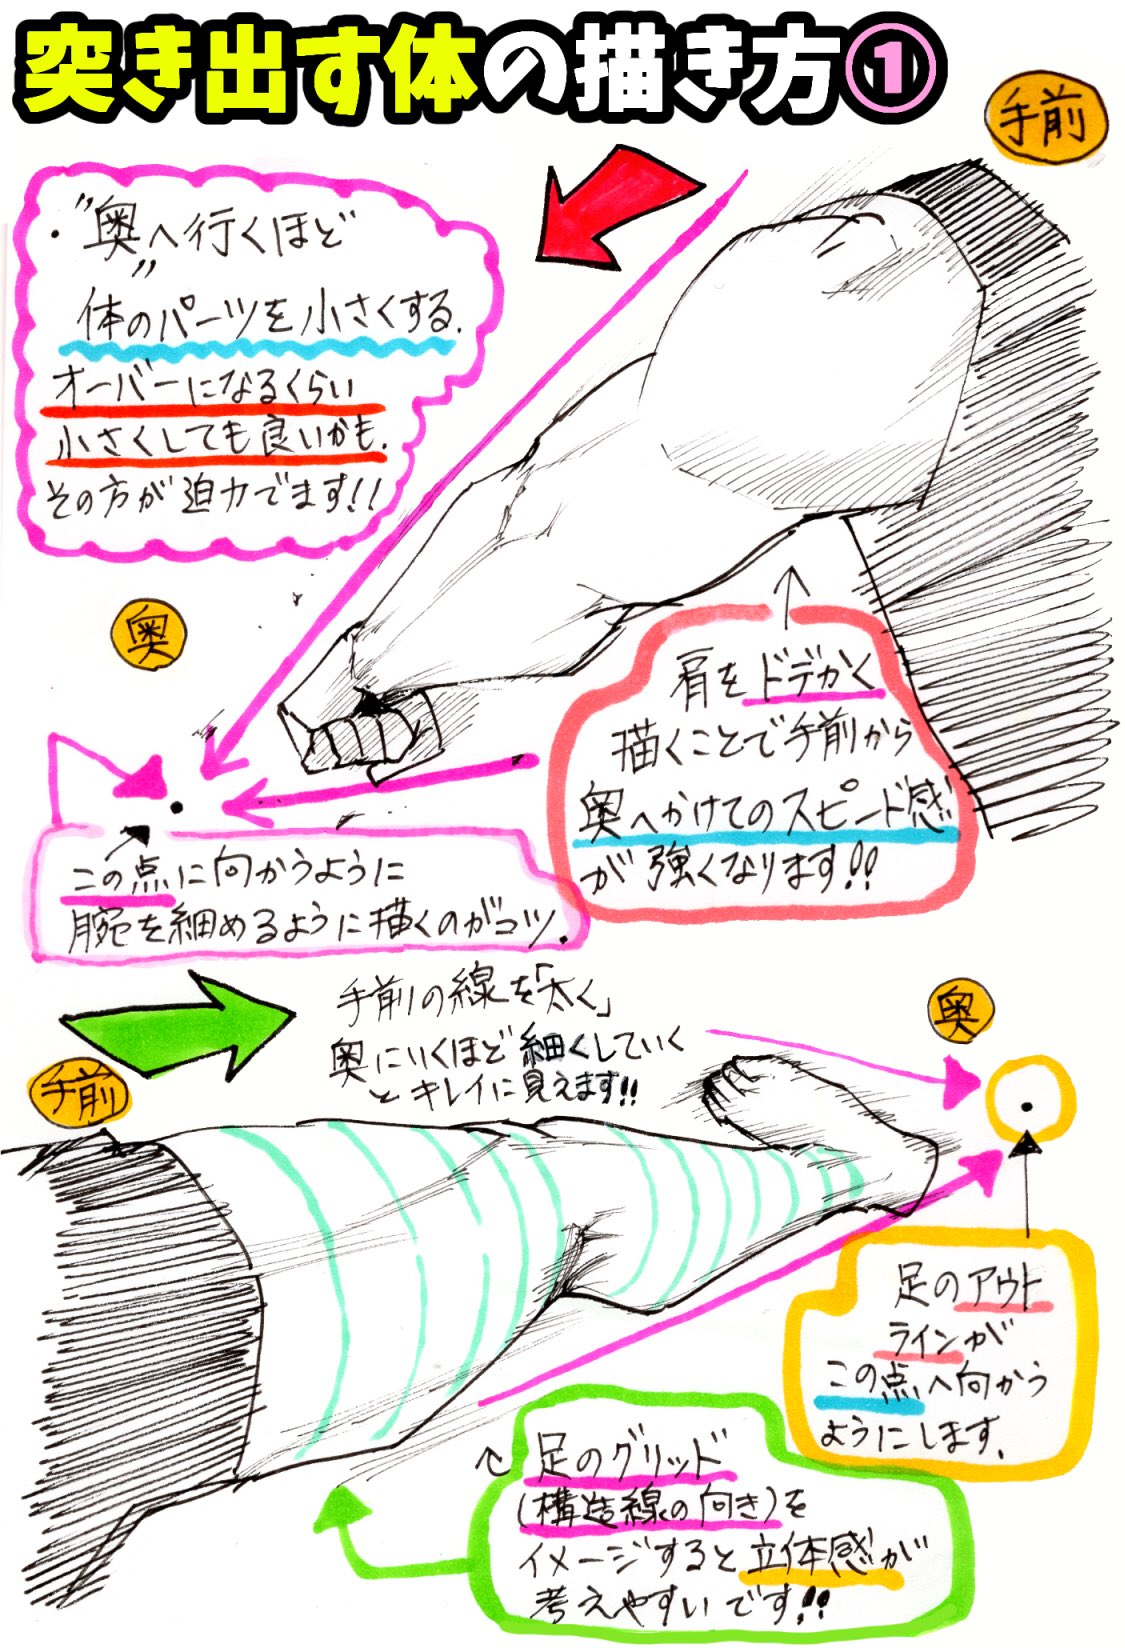 突き出す体の描き方①
手前
・"奥"へ行くほど
体のパーツを小さくする.
オーバーになるくらい
小さくしても良いかも.
その方が迫力でます!!
奥
肩をドデかく
描くことで手前から
奥へかけてのスピード感
が強くなります!!
この点に向かうように
腕を細めるように描くのがコツ.
手前の線を「太く」
奥にいくほど細くしていく
とキレイに見えます!!
奥
手前
足のアウト
ラインが
この点へ向かう
ようにします.
足のグリッド
(構造線の向き)を
イメージすると立体感が
考えやすいです!!